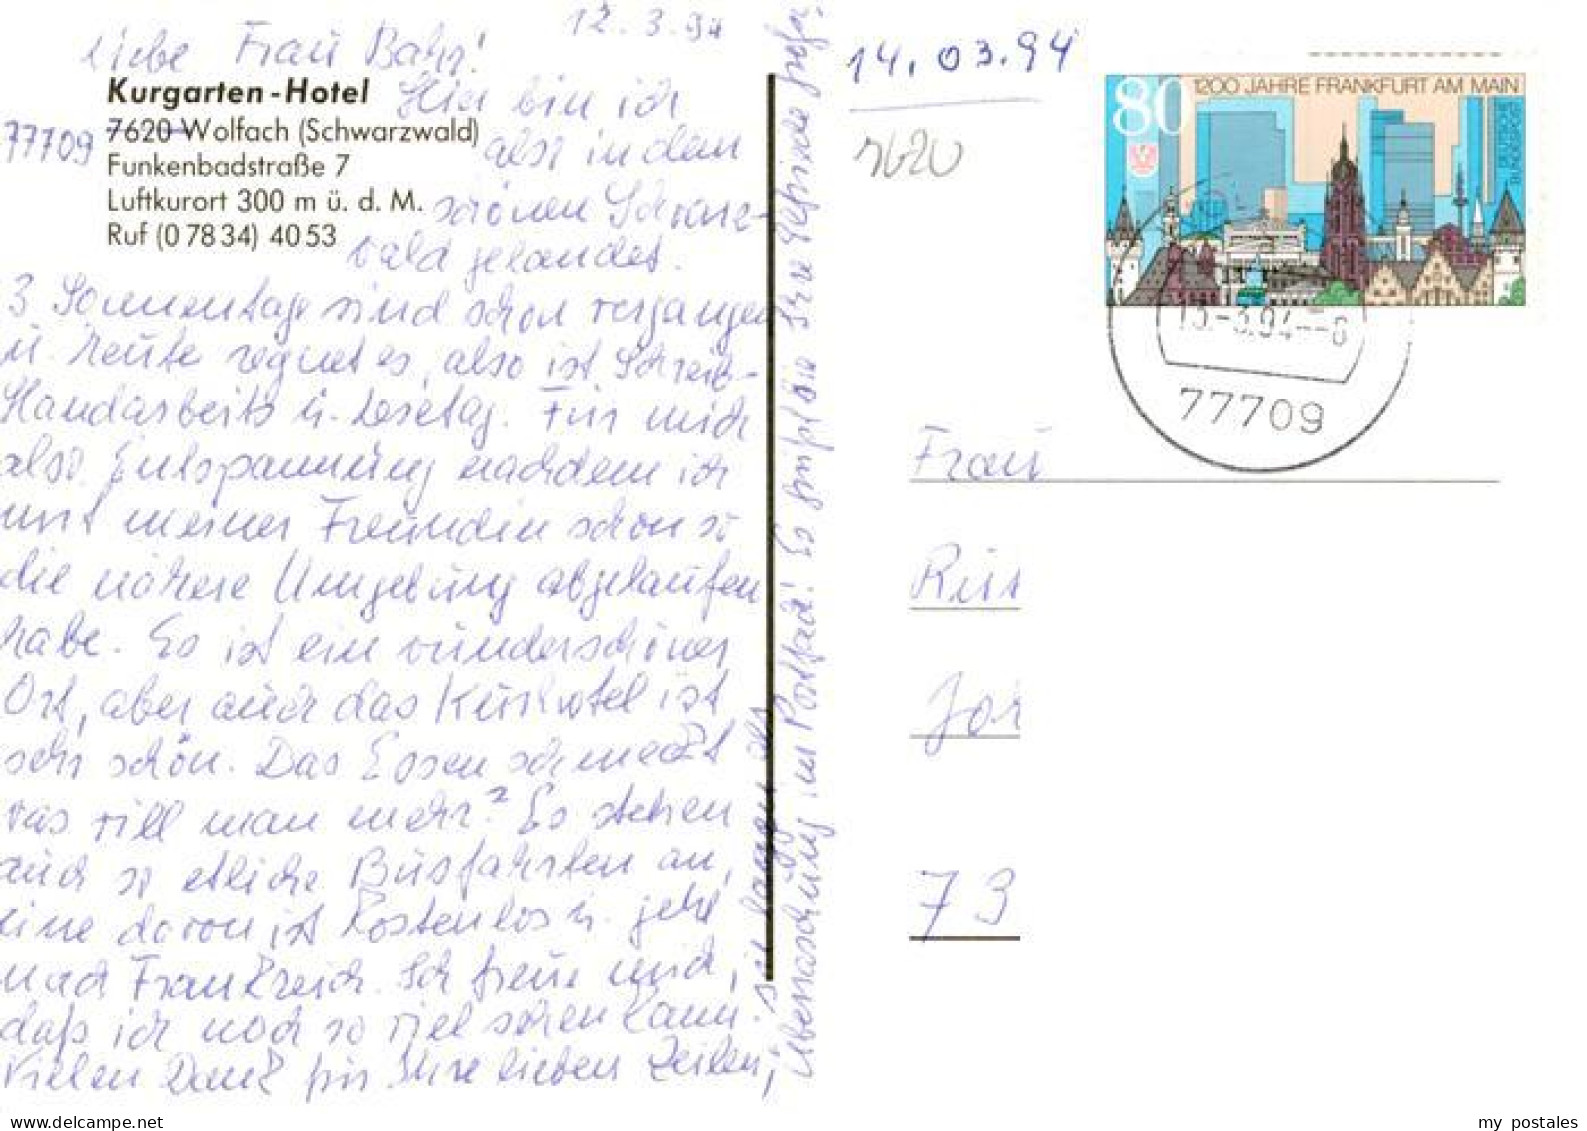 12.3.94
Liebe Frau Bahr!
Kurgarten-Hotel
Hier bin ich
77709 7620 Wolfach (Schwarzwald)
also in dem
Funkenbadstraße 7
Luftkurort 300 m ü. d. M.
schönen Schwarz-
Ruf (0 78 34) 40 53
wald gelandet.
3 Sonnentage sind schon vergangen
u. heute regnet es, also ist Schreib-
Handarbeits u. Lesetag. Für mich
also Entspannung nachdem ich
mit meiner Freundin schon so
die nähere Umgebung abgelaufen
habe. Es ist ein wunderschöner
Ort, aber auch das Kurhotel ist
sehr schön. Das Essen schmeckt
was will man mehr? Es stehen
auch so etliche Busfahrten an,
eine davon ist kostenlos u. geht
nach Frankreich. Ich freue mich,
daß ich noch so viel sehen kann.
Vielen Dank für Ihre lieben Zeilen,
Überraschung im Postfach! Es Ihre
14.03.94
7620
80
1200 JAHRE FRANKFURT AM MAIN
DEUTSCHE
BUNDESPOST
77709
Frau
73
my postales